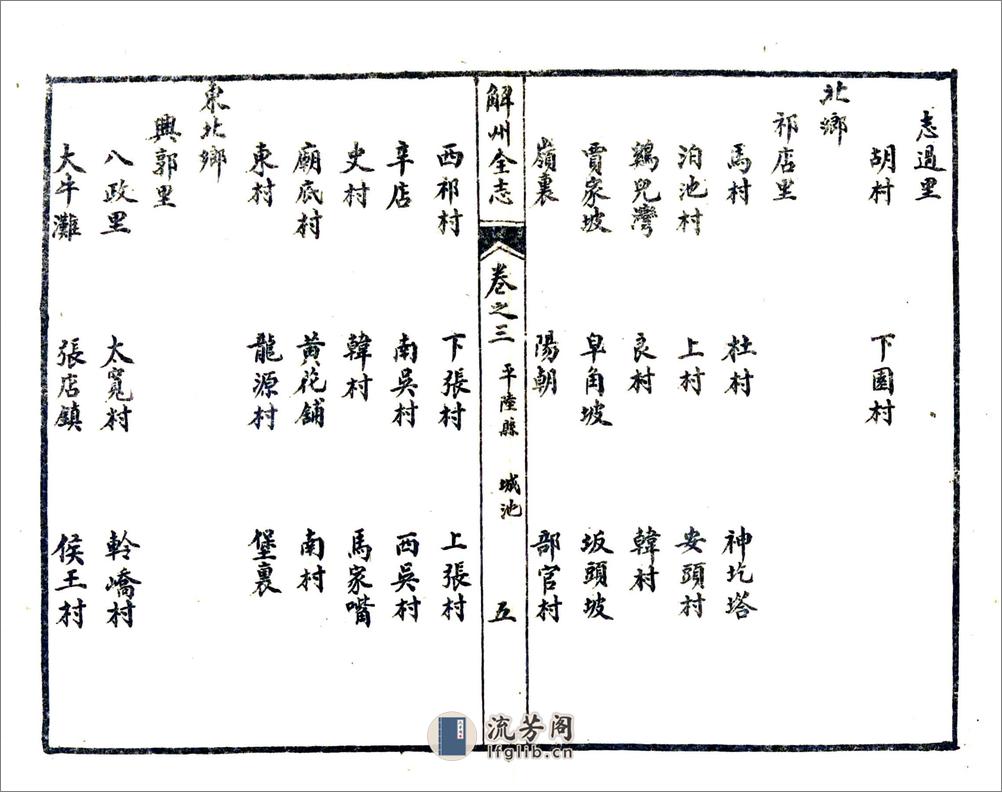 志過里
胡村 下園村
北鄉
祁店里
馬村 杜村 神圪塔
泊池村 上村 安頭村
鷂兒灣 良村 韓村
賈家坡 皁角坡 坂頭坡
嶺裏 陽朝 部官村
解州全志 卷之三 平陸縣 城池 五
西祁村 下張村 上張村
辛店 南吳村 西吳村
史村 韓村 馬家嘴
廟底村 黃花舖 南村
東村 龍源村 堡裏
東北鄉
興郭里
八政里 太寬村 軨嶠村
大牛灘 張店鎮 侯王村
流芳阁
lfglib.cn